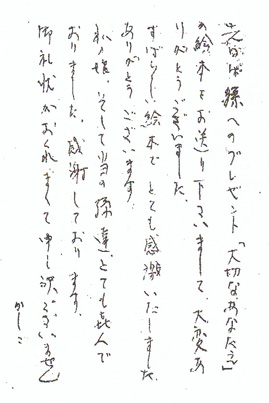 孫へのプレゼント「大切なあなたへ」
の絵本をお送り下さいまして、大変あ
りがとうございました。
すばらしい絵本でとても感激いたしました。
ありがとうございます。
私、娘、そして当の孫達、とても喜んで
おりました。感謝しております。
御礼状がおくれまして申し訳ございません
かしこ